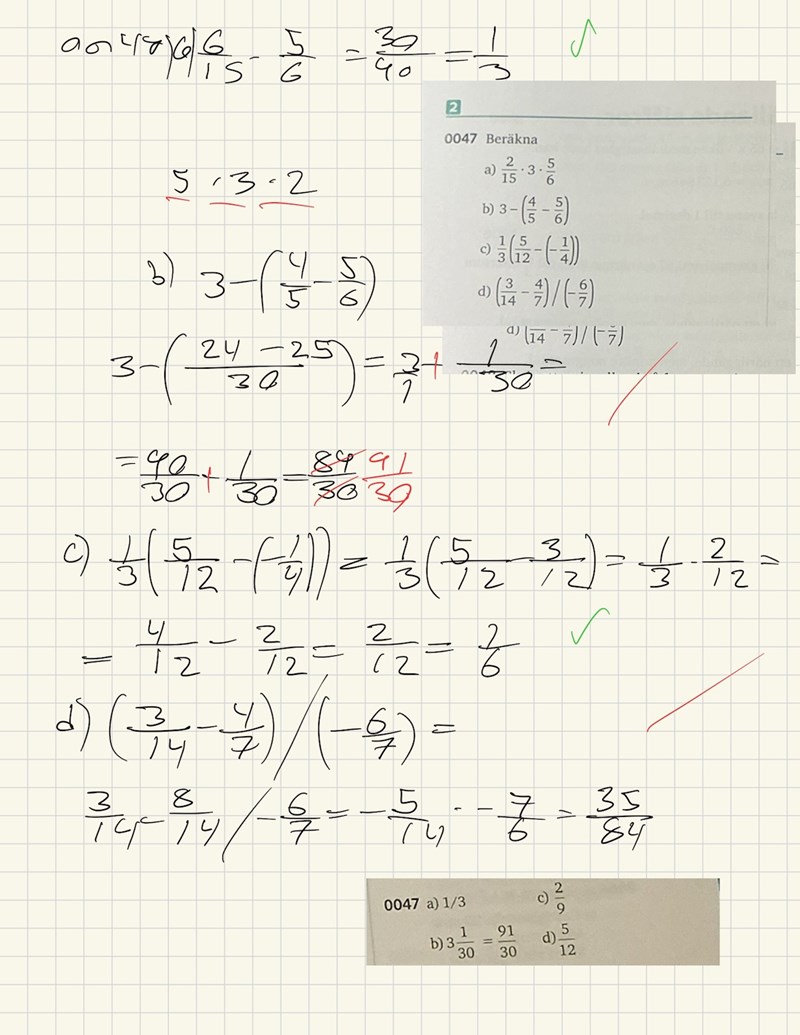 6/15 - 5/6 = 30/90 = 1/3
2
0047 Beräkna
a) 2/15 · 3 · 5/6
b) 3 − (4/5 − 5/6)
c) 1/3 (5/12 − (−1/4))
d) (3/14 − 4/7) / (−6/7)
d) (/14 − /7) / (−/7)
5 · 3 · 2
b) 3 − (4/5 − 5/6)
3 − (24 − 25/30) = 3/1 + 1/30 =
= 90/30 + 1/30 = 89/30 91/30
c) 1/3 (5/12 − (−1/4)) = 1/3 (5/12 − 3/12) = 1/3 - 2/12 =
= 4/12 − 2/12 = 2/12 = 1/6
d) (3/14 − 4/7) / (−6/7) =
3/14 − 8/14 / −6/7 = −5/14 · −7/6 = 35/84
0047 a) 1/3 c) 2/9
b) 3 1/30 = 91/30 d) 5/12